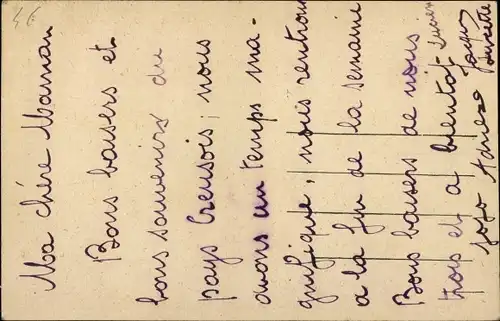 Ma chère Maman
Bons baisers et
bons souvenirs du
pays Creusois ; nous
avons un temps ma-
gnifique, nous rentrons
a la fin de la semaine
Bons baisers de nous
trois et a bientot